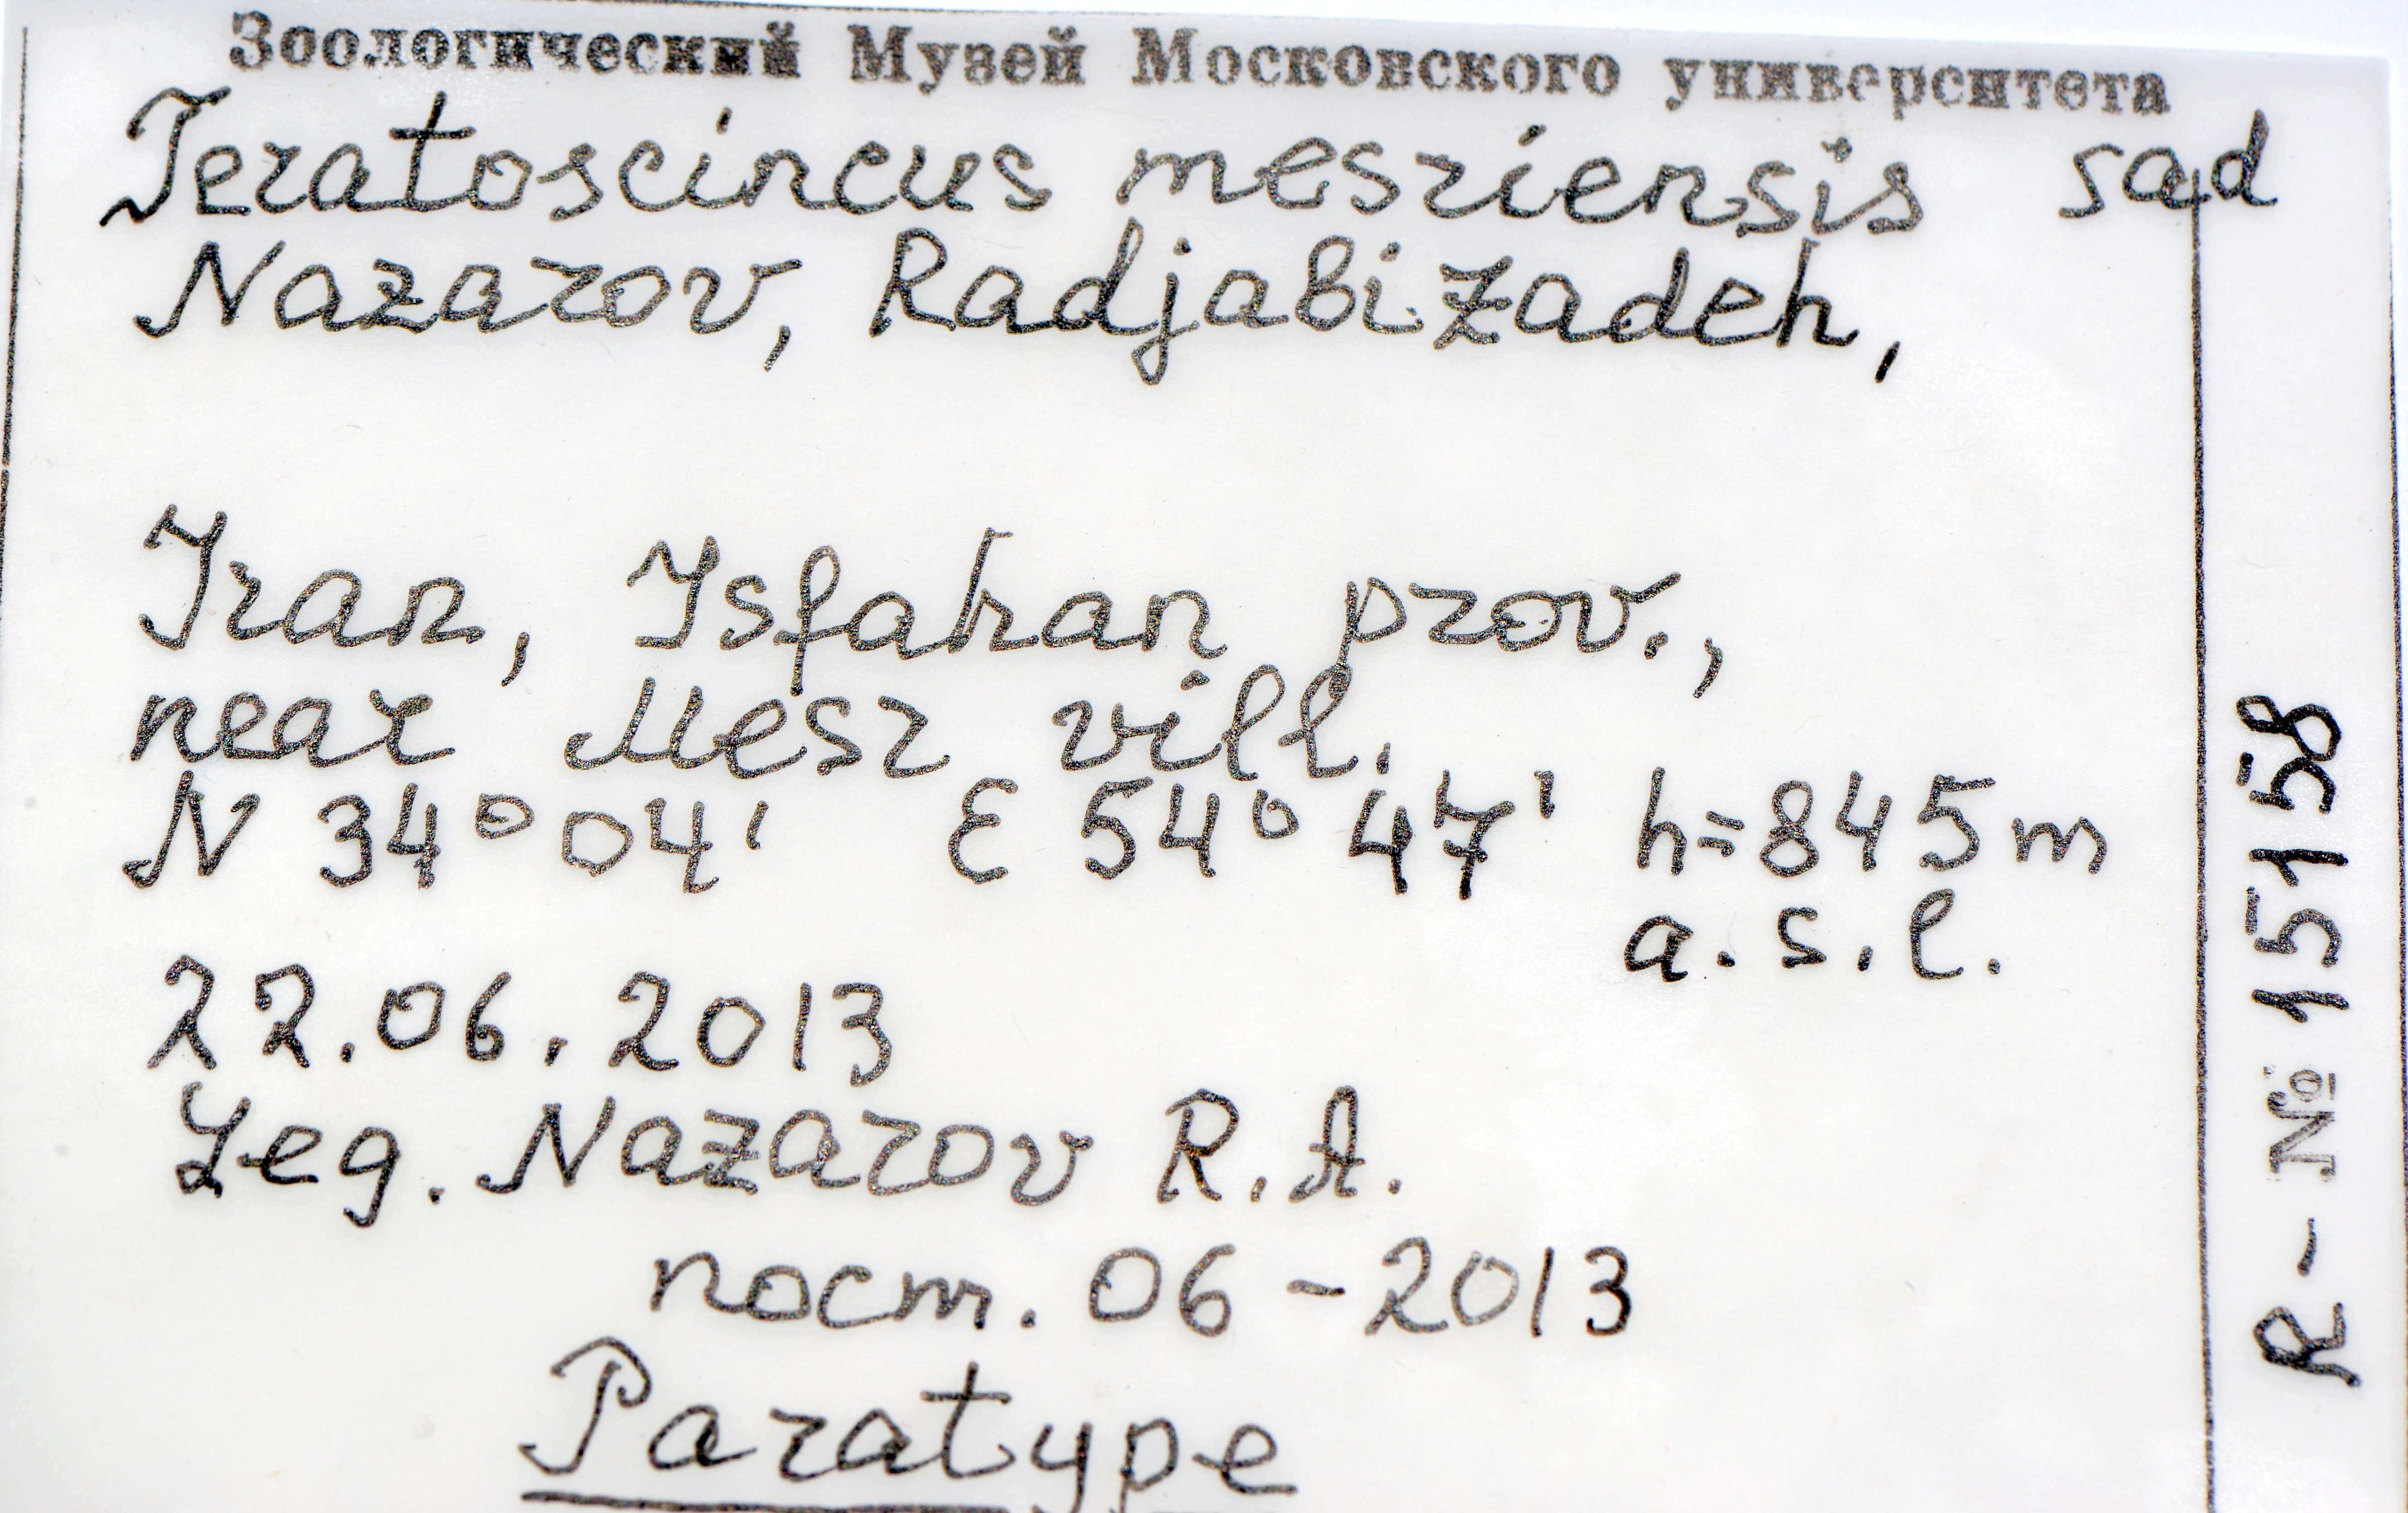 Зоологический Музей Московского университета
Teratoscincus mesriensis sad
Nazarov, Radjabizadeh,
Iran, Isfahan prov.,
near Mesr vill.
N 34° 04' E 54° 47' h=845m
a.s.l.
22.06.2013
Leg. Nazarov R.A.
пост. 06-2013
Paratype
R- № 15158